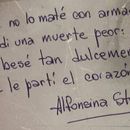 no lo maté con arma
di una muerte peor:
bese tan dulcemen
le partí el corazón
Alfonsina St